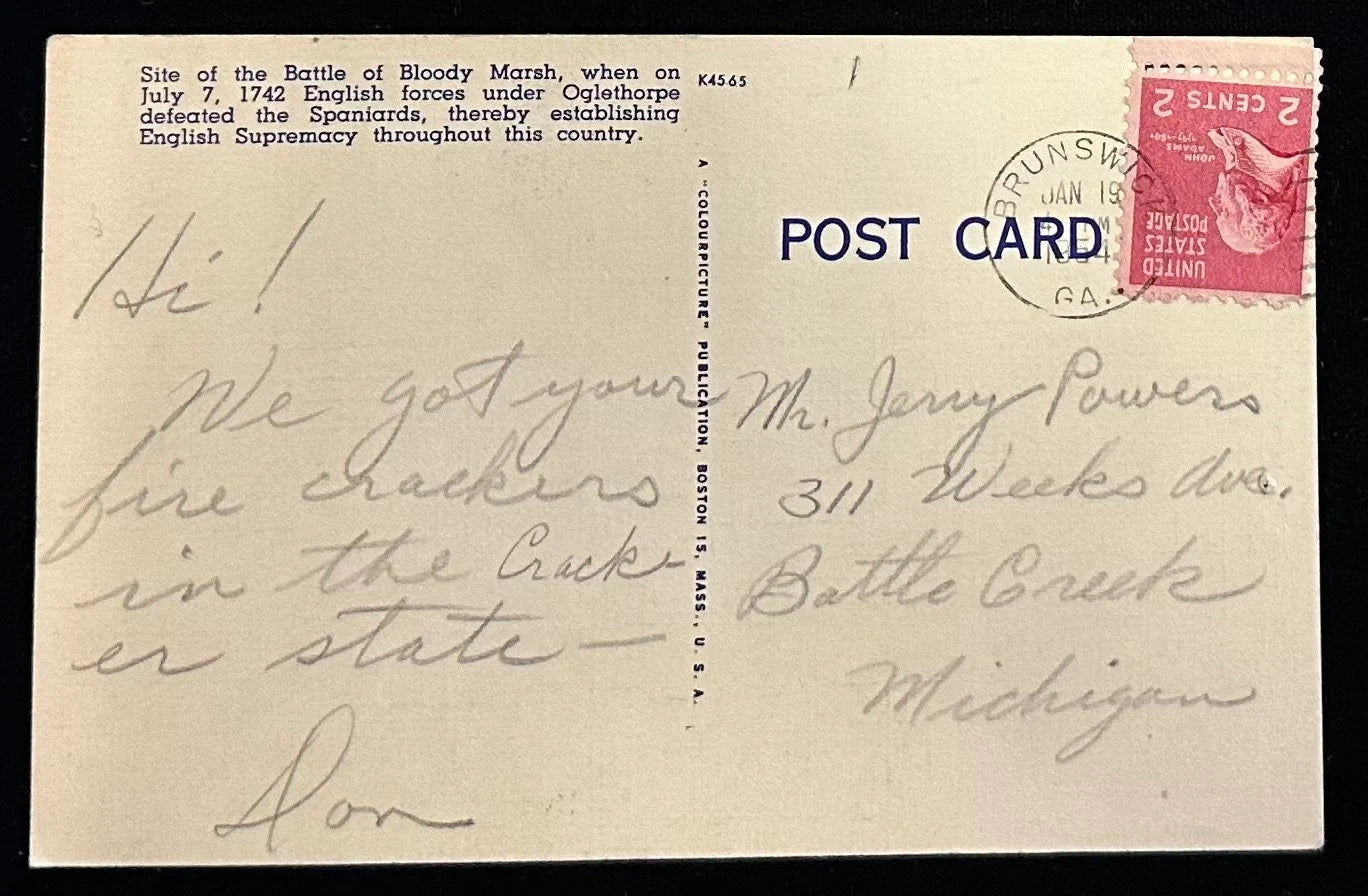 Site of the Battle of Bloody Marsh, when on
July 7, 1742 English forces under Oglethorpe
defeated the Spaniards, thereby establishing
English Supremacy throughout this country.
K4565
A "COLOURPICTURE" PUBLICATION, BOSTON 15, MASS., U. S. A.
POST CARD
BRUNSWICK
JAN 19
1954
GA.
2 CENTS 2
JOHN
ADAMS
UNITED
STATES
POSTAGE
Hi!
We got your
fire crackers
in the Crack-
er state —
Don
Mr. Jerry Powers
311 Weeks Ave.
Battle Creek
Michigan